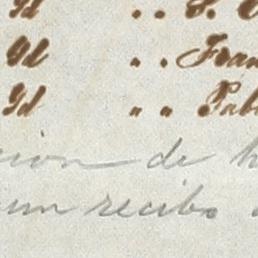 Id " "
Id " " Fran
Id " " Pab
cion de h
un recibo